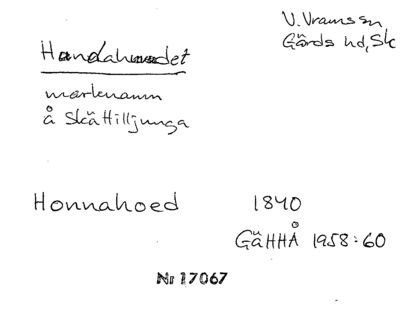 V. Vrams sn
Gärds hd, Sk
Hundahuvudet
marknamn
å Skättilljunga
Honnahoed 1840
GäHHÅ 1958:60
Nr 17067